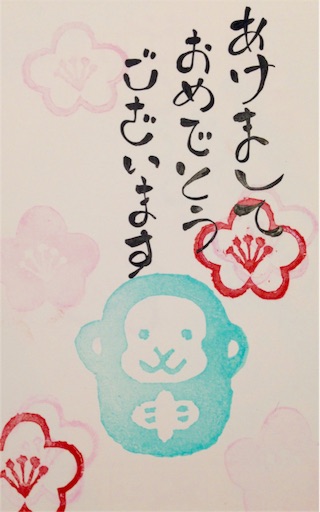 あけまして
おめでとう
ございます
申